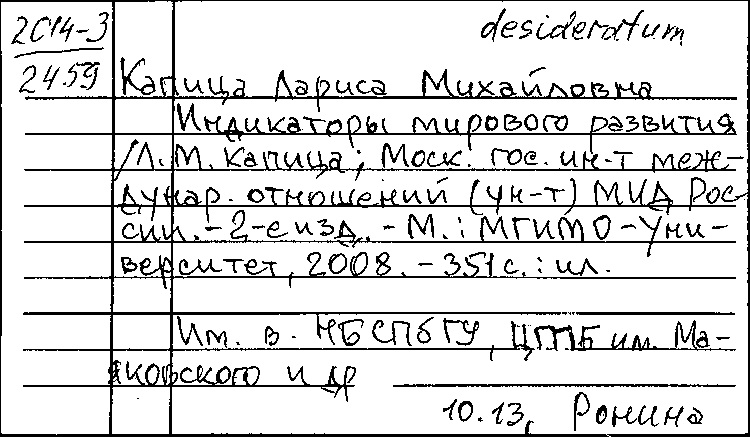 2014-3
2459
desideratum
Капица Лариса Михайловна
Индикаторы мирового развития
/Л.М. Капица; Моск. гос. ин-т меж-
дунар. отношений (ун-т) МИД Рос-
сии. - 2-е изд. - М.: МГИМО-Уни-
верситет, 2008. - 351 с. : ил.
Им. в. НБСПбГУ, ЦГПБ им. Ма-
яковского и др
10.13, Ронина